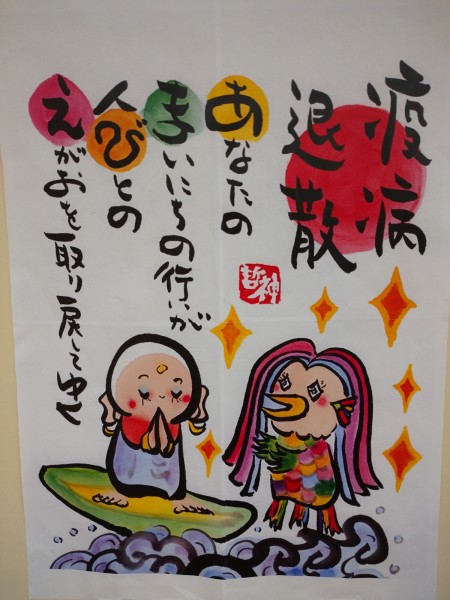 疫病
退散
あなたの
まいにちの行いが
人びとの
えがおを取り戻してゆく